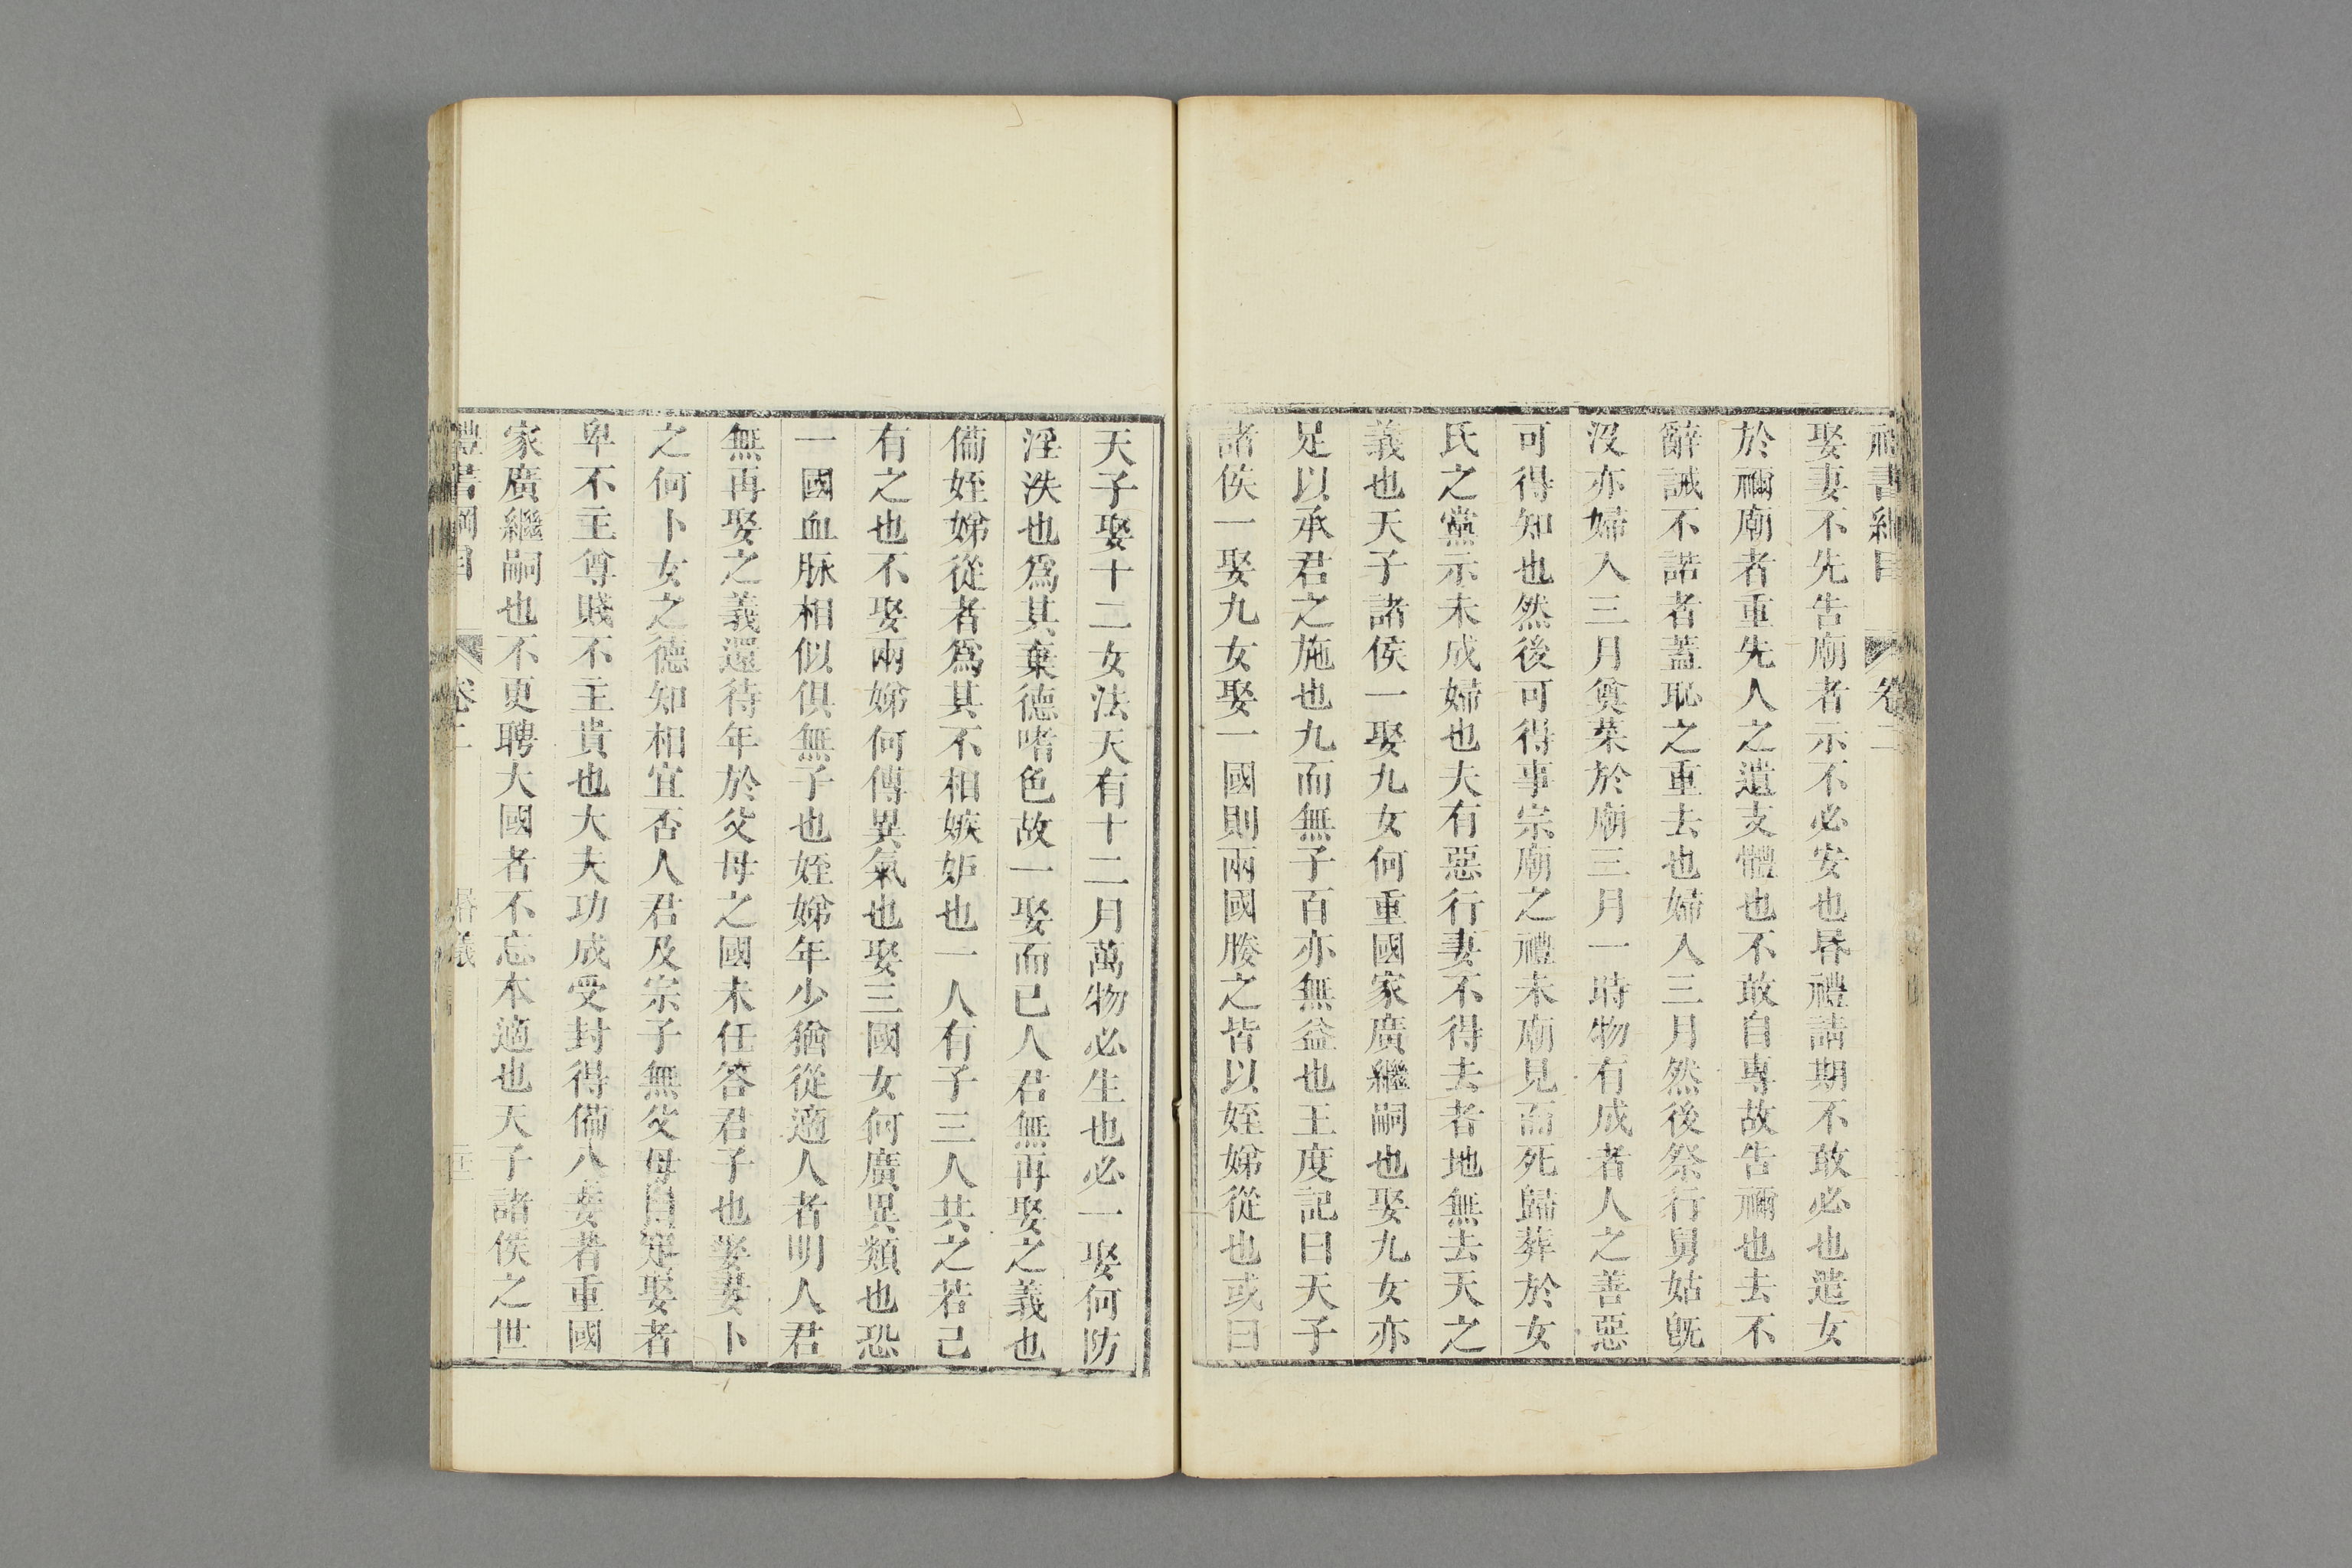 禮書綱目 卷二
娶妻不先告廟者示不必安也昏禮請期不敢必也遣女
於禰廟者重先人之遺支體也不敢自專故告禰也去不
辭誡不諾者蓋恥之重去也婦入三月然後祭行舅姑旣
沒亦婦入三月奠菜於廟三月一時物有成者人之善惡
可得知也然後可得事宗廟之禮未廟見而死歸葬於女
氏之黨示未成婦也夫有惡行妻不得去者地無去天之
義也天子諸侯一娶九女何重國家廣繼嗣也娶九女亦
足以承君之施也九而無子百亦無益也王度記曰天子
諸侯一娶九女娶一國則兩國媵之皆以姪娣從也或曰
天子娶十二女法天有十二月萬物必生也必一娶何防
淫泆也爲其棄德嗜色故一娶而已人君無再娶之義也
備姪娣從者爲其不相嫉妒也一人有子三人共之若己
有之也不娶兩娣何傳異氣也娶三國女何廣異類也恐
一國血脉相似俱無子也姪娣年少猶從適人者明人君
無再娶之義還待年於父母之國未任答君子也娶妻卜
之何卜女之德知相宜否人君及宗子無父母自定娶者
卑不主尊賤不主貴也大夫功成受封得備八妾者重國
家廣繼嗣也不更聘大國者不忘本適也天子諸侯之世
禮書綱目 卷二 昏義